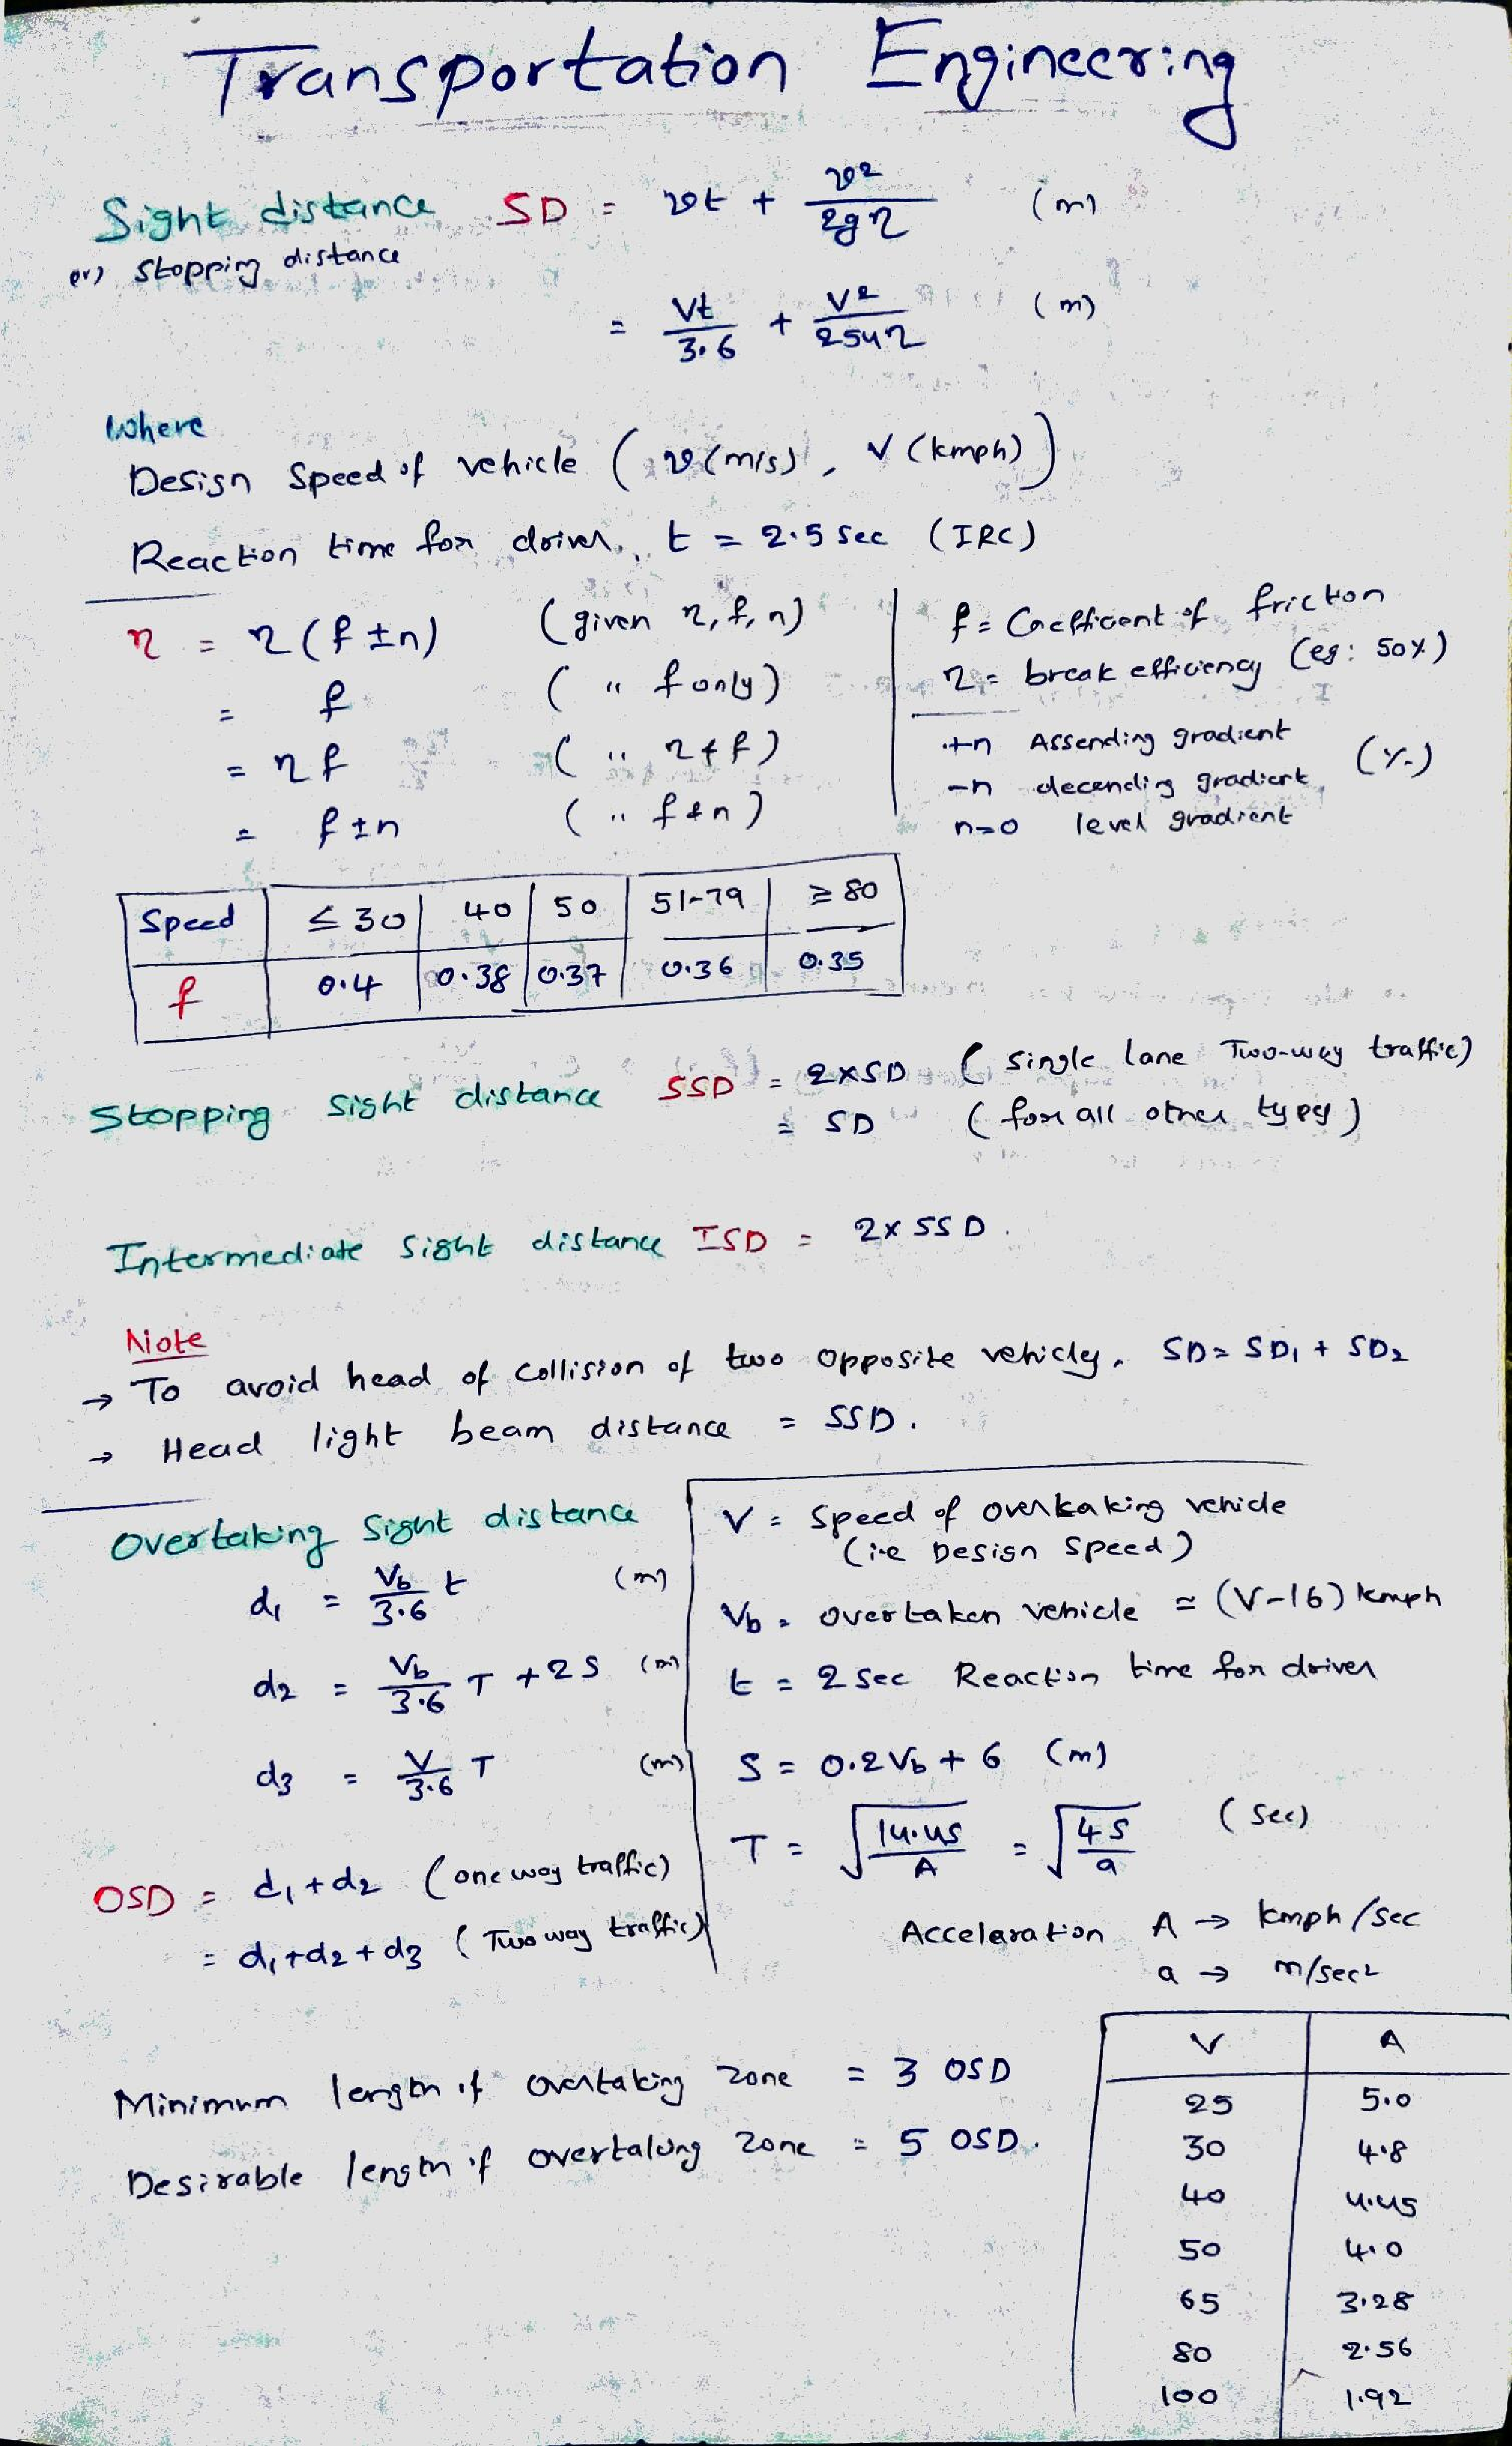 Transportation Engineering
Sight distance SD = vt + v²/2gη (m)
(or) Stopping distance
= Vt/3.6 + V²/254η (m)
Where
Design Speed of vehicle (v(m/s), V (kmph))
Reaction time for driver, t = 2.5 Sec (IRC)
η = η(f ±n) (given η, f, n)
= f (" f only)
= ηf (" η & f)
= f ±n (" f & n)
f = Coefficient of friction
η = break efficiency (eg: 50%)
+n Assending gradient (%)
-n decending gradient
n=0 level gradient
Speed ≤ 30 40 50 51-79 ≥ 80
f 0.4 0.38 0.37 0.36 0.35
Stopping Sight distance SSD = 2×SD (Single lane Two-way traffic)
= SD (for all other types)
Intermediate Sight distance ISD = 2×SSD.
Note
→ To avoid head of Collision of two opposite vehicles, SD = SD₁ + SD₂
→ Head light beam distance = SSD.
Overtaking Sight distance
d₁ = Vb/3.6 t (m)
d₂ = Vb/3.6 T + 2S (m)
d₃ = V/3.6 T (m)
OSD = d₁+d₂ (one way traffic)
= d₁+d₂+d₃ (Two way traffic)
V = Speed of overtaking vehicle
(i.e Design Speed)
Vb = overtaken vehicle = (V-16) kmph
t = 2 Sec Reaction time for driver
S = 0.2Vb + 6 (m)
T = √(14.4S/A) = √(4S/a) (Sec)
Acceleration A → kmph/sec
a → m/sec²
Minimum length of overtaking zone = 3 OSD
Desirable length of overtaking zone = 5 OSD.
V A
25 5.0
30 4.8
40 4.45
50 4.0
65 3.28
80 2.56
100 1.92